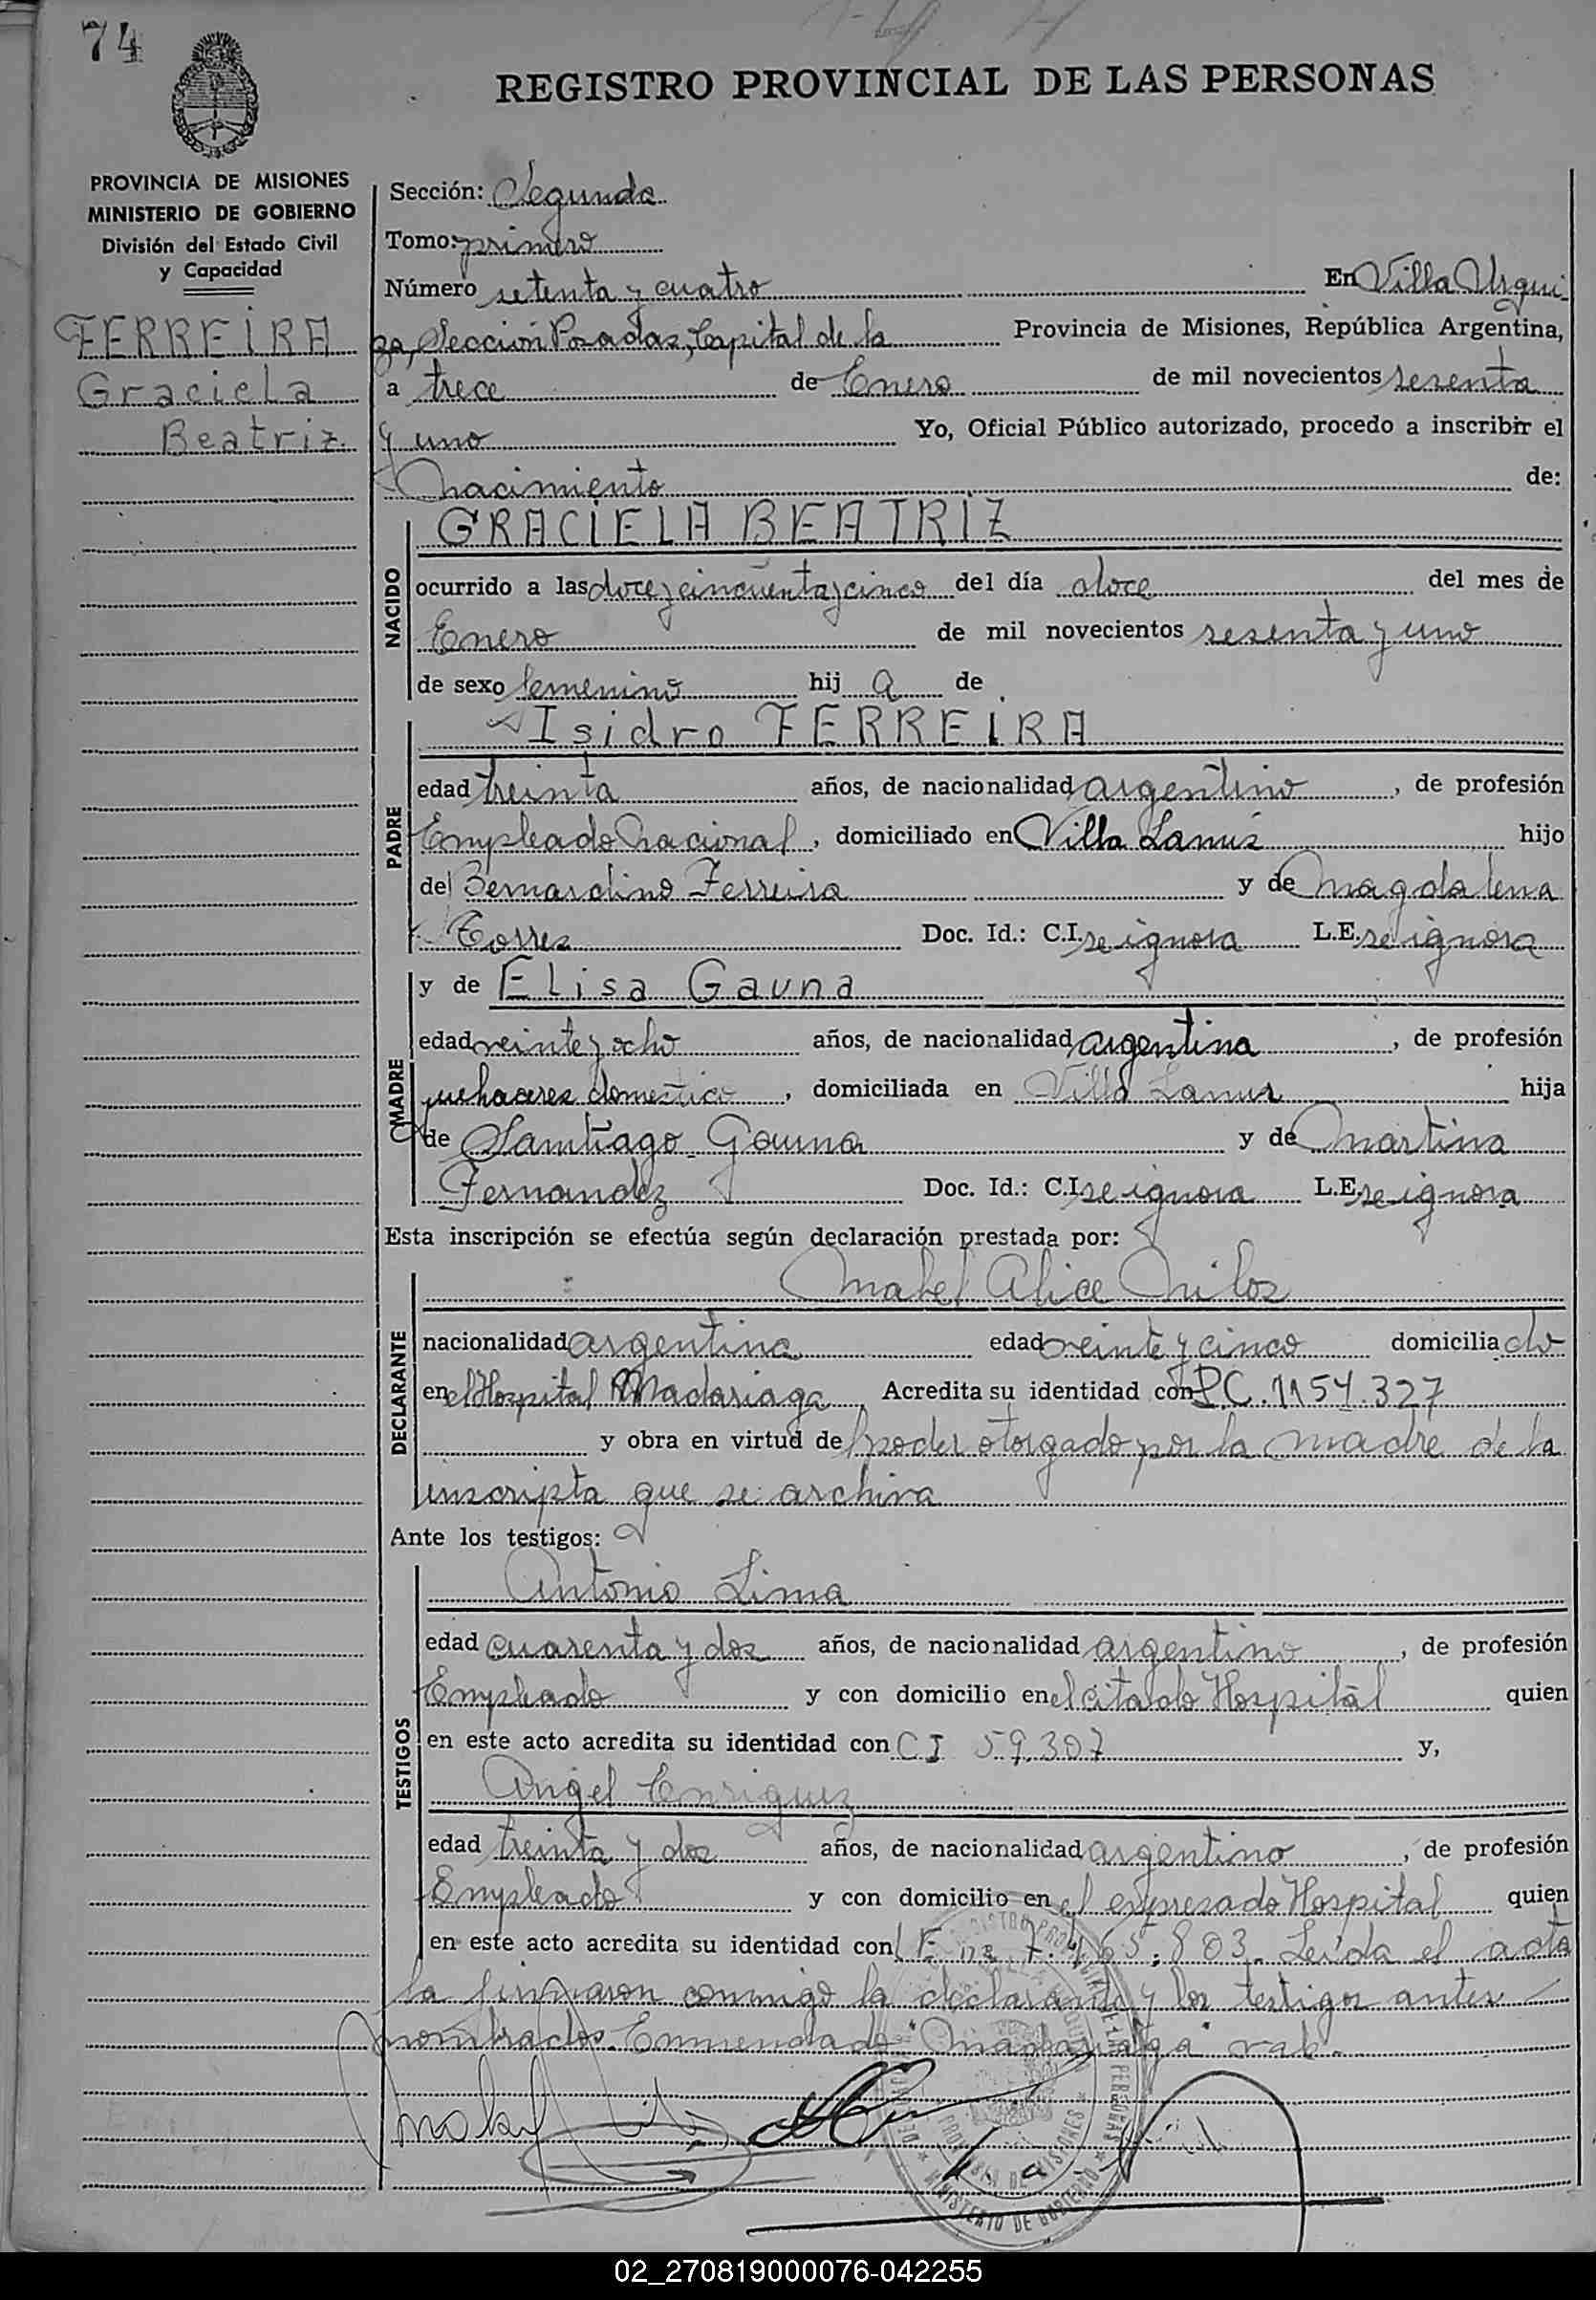 74
REGISTRO PROVINCIAL DE LAS PERSONAS
PROVINCIA DE MISIONES
MINISTERIO DE GOBIERNO
División del Estado Civil
y Capacidad
FERREIRA
Graciela
Beatriz.
Sección: Segunda
Tomo: primero
Número setenta y cuatro En Villa Urqui
za, Sección Posadas, Capital de la Provincia de Misiones, República Argentina,
a trece de Enero de mil novecientos sesenta
y uno Yo, Oficial Público autorizado, procedo a inscribir el
Nacimiento de:
NACIDO
GRACIELA BEATRIZ
ocurrido a las doce y cincuenta y cinco del día doce del mes de
Enero de mil novecientos sesenta y uno
de sexo femenino hij a de
PADRE
Isidro FERREIRA
edad treinta años, de nacionalidad argentino, de profesión
Empleado Nacional, domiciliado en Villa Lanús hijo
de Bernardino Ferreira y de Magdalena
Torres Doc. Id.: C.I. se ignora L.E. se ignora
MADRE
y de Elisa Gauna
edad veinte y ocho años, de nacionalidad argentina, de profesión
quehaceres domestico, domiciliada en Villa Lanus hija
de Santiago Gauna y de Martina
Fernandez Doc. Id.: C.I. se ignora L.E. se ignora
Esta inscripción se efectúa según declaración prestada por:
DECLARANTE
Mabel Alice Milos
nacionalidad argentina edad veinte y cinco domicilia do
en el Hospital Madariaga, Acredita su identidad con P.C. 1154.327
y obra en virtud de poder otorgado por la madre de la
inscripta que se archiva
Ante los testigos:
TESTIGOS
Antonio Lima
edad cuarenta y dos años, de nacionalidad argentino, de profesión
Empleado y con domicilio en el citado Hospital quien
en este acto acredita su identidad con C I 59.307 y,
Angel Enriquez
edad treinta y dos años, de nacionalidad argentino, de profesión
Empleado y con domicilio en el expresado Hospital quien
en este acto acredita su identidad con L E nº 7.465.803. Leída el acta
la firmaron conmigo la declarante y los testigos antes
nombrados. Enmendado "Madariaga" vale.
MINISTERIO DE GOBIERNO
PROVINCIA DE MISIONES
02_270819000076-042255